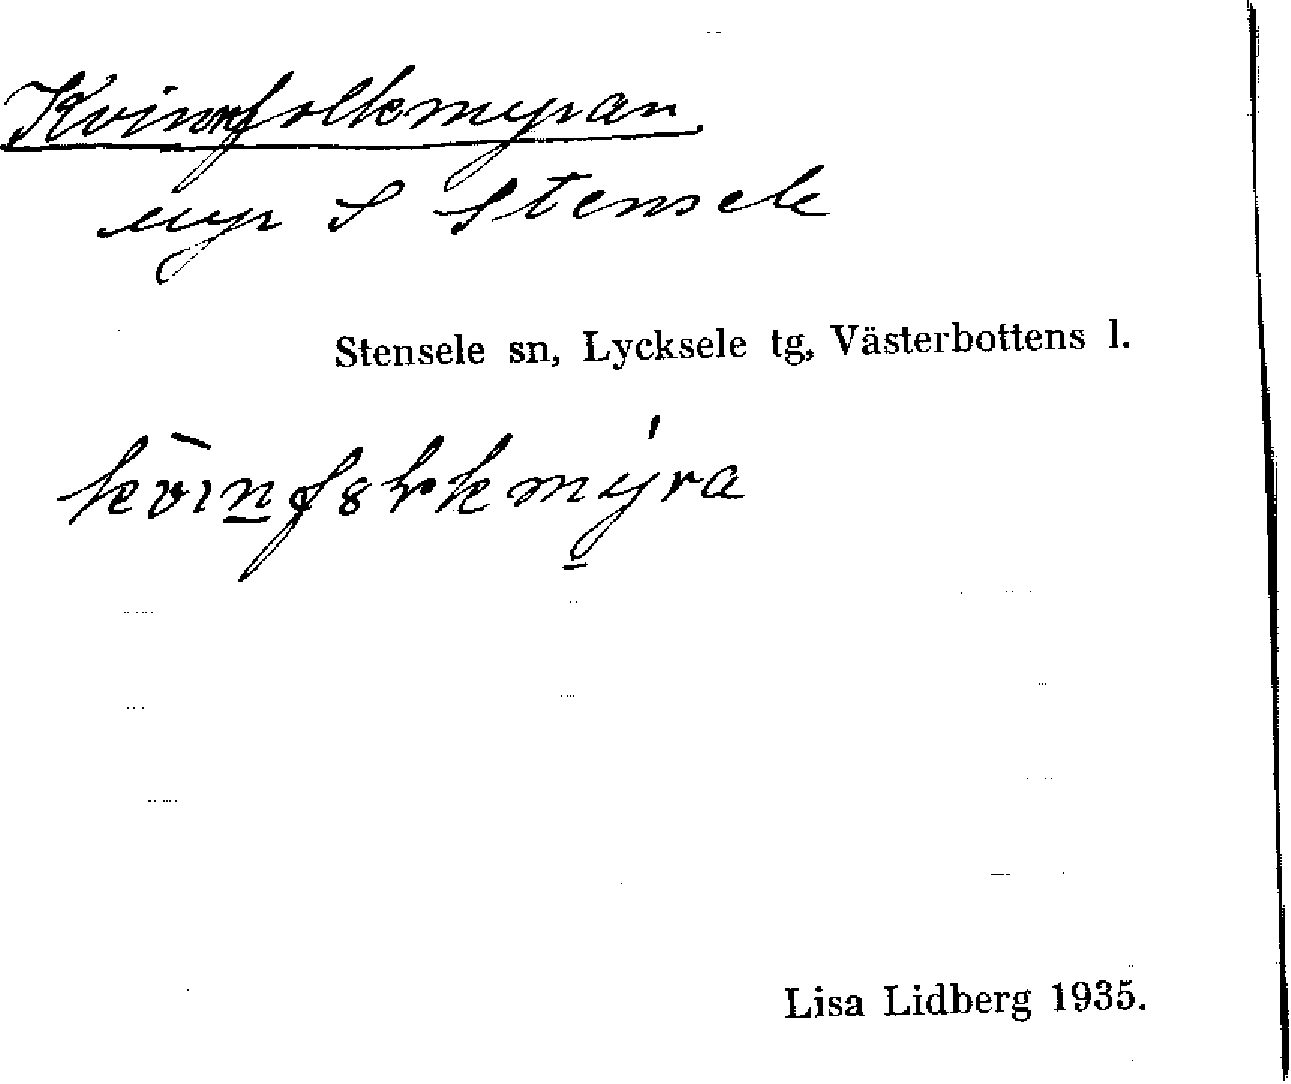 Kvinnfolkmyran
myr S Stensele
Stensele sn, Lycksele tg, Västerbottens l.
Lisa Lidberg 1935.